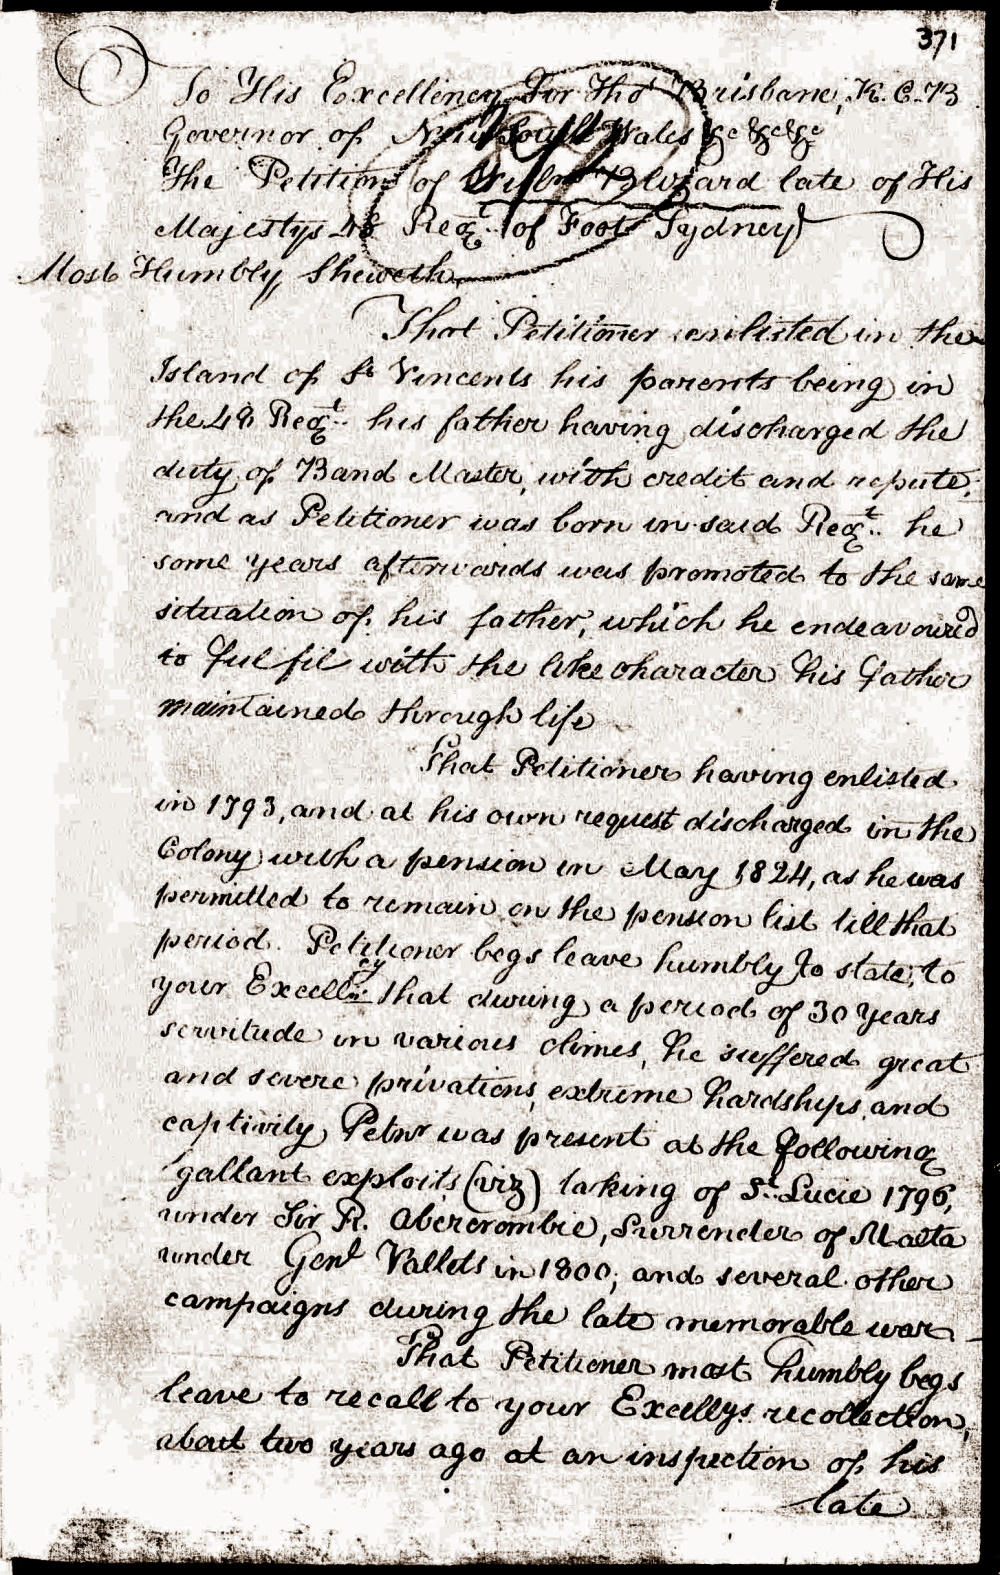 371
To His Excellency Sir Thos Brisbane, K.C.B
Governor of New South Wales &c &c &c
The Petition of Willm Blizard late of His
Majestys 48 Regt. of Foot Sydney
Most Humbly Sheweth
That Petitioner enlisted in the
Island of St Vincents his parents being in
the 48 Regt.. his father having discharged the
duty of Band Master, with credit and repute;
and as Petitioner was born in said Regt.. he
some years afterwards was promoted to the same
situation of his father, which he endeavoured
to fulfil with the like character his father
maintained through life
That Petitioner having enlisted
in 1793, and at his own request discharged in the
Colony with a pension in May 1824, as he was
permitted to remain on the pension list till that
period. Petitioner begs leave humbly to state, to
your Excellcy that during a period of 30 years
servitude in various climes, he suffered great
and severe privations, extreme hardships, and
captivity, Petnr was present at the following
gallant exploits (viz) taking of St. Lucie 1796,
under Sir R. Abercrombie, Surrender of Malta
under Genl Vallets in 1800, and several other
campaigns during the late memorable war –
That Petitioner most humbly begs
leave to recall to your Excellys recollection,
about two years ago at an inspection of his
late